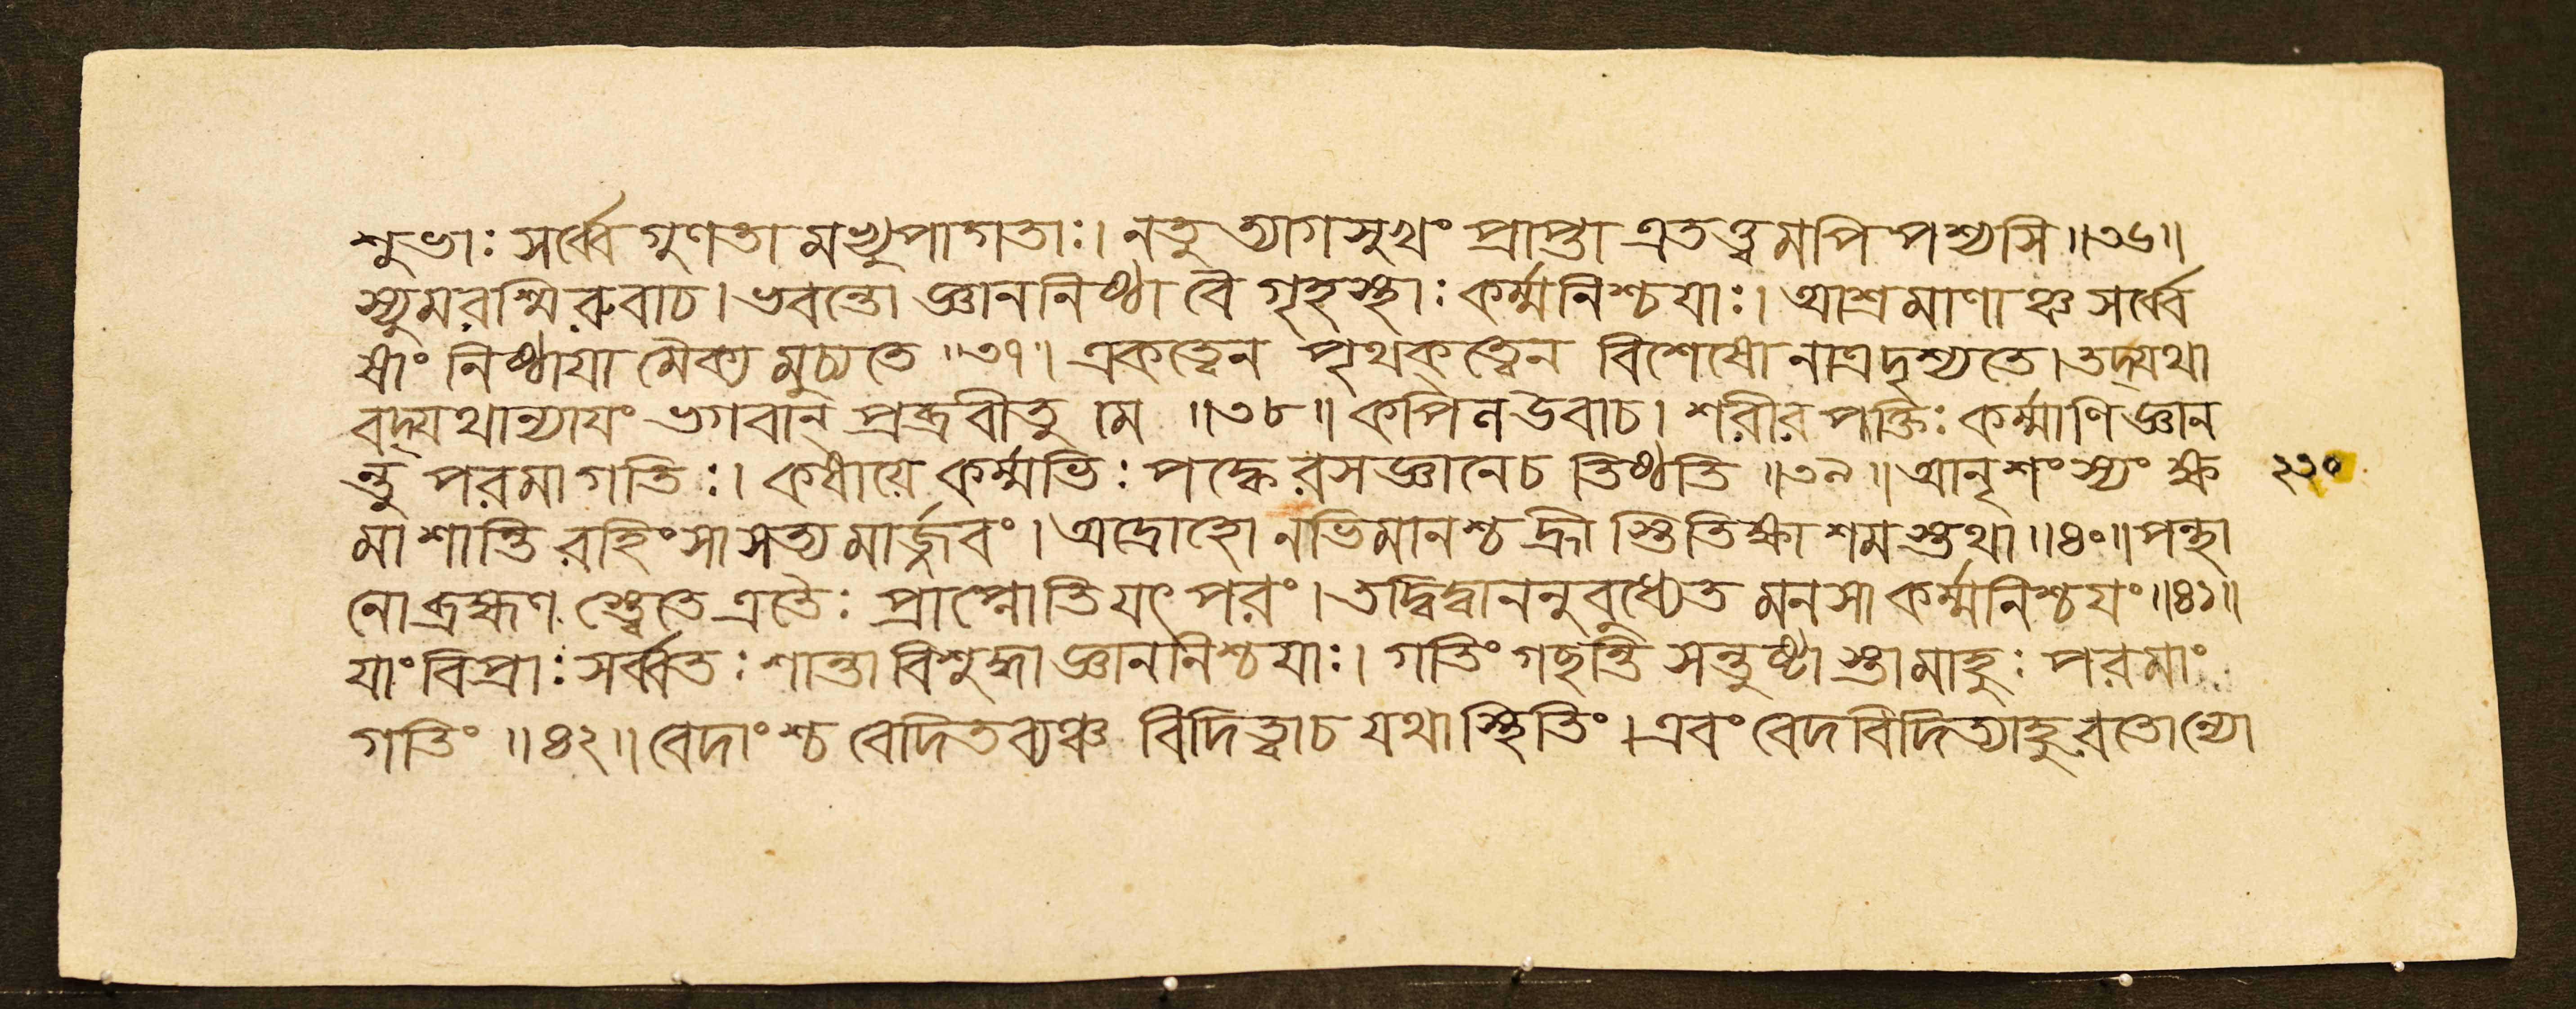 শুভাঃ সর্ব্বে গুণতা মভ্যুপাগতাঃ। নতু ত্যাগসুখং প্রাপ্তা এতত্ত্বমপি পশ্যসি॥৩৬॥
স্যুমরশ্মি রুবাচ। ভবন্তো জ্ঞাননিষ্ঠা বৈ গৃহস্থাঃ কর্ম্মনিশ্চয়াঃ। আশ্রমাণাঞ্চ সর্ব্বে
ষাং নিষ্ঠায়া মৈক্য মুচ্যতে॥৩৭। একত্বেন পৃথক্ত্বেন বিশেষো নাত্রদৃশ্যতে। তদ্যথা
বদ্যথান্যায়ং ভগবান্ প্রব্রবীতু মে॥৩৮॥ কপিল উবাচ। শরীর পক্তিঃ কর্ম্মাণি জ্ঞান
ন্তু পরমা গতিঃ। কষায়ে কর্ম্মভিঃ পক্বে রসজ্ঞানেচ তিষ্ঠতি॥৩৯॥ আনৃশংস্যং ক্ষ ২৩০
মা শান্তি রহিংসা সত্য মার্জ্জবং। অদ্রোহো নাভিমানশ্চ হ্রী স্তিতিক্ষা শম স্তথা॥৪০॥ পন্থা
নো ব্রহ্মণ স্ত্বেতে এতৈঃ প্রাপ্নোতি যৎ পরং। তদ্বিদ্বাননুবুধ্যেত মনসা কর্ম্মনিশ্চয়ং॥৪১॥
যাং বিপ্রাঃ সর্ব্বতঃ শান্তা বিশুদ্ধা জ্ঞাননিশ্চয়াঃ। গতিং গছন্তি সন্তুষ্টা স্তামাহুঃ পরমাং
গতিং॥৪২॥ বেদাংশ্চ বেদিতব্যঞ্চ বিদিত্বাচ যথাস্থিতিং। এবং বেদবিদিত্যাহু রতোন্যো